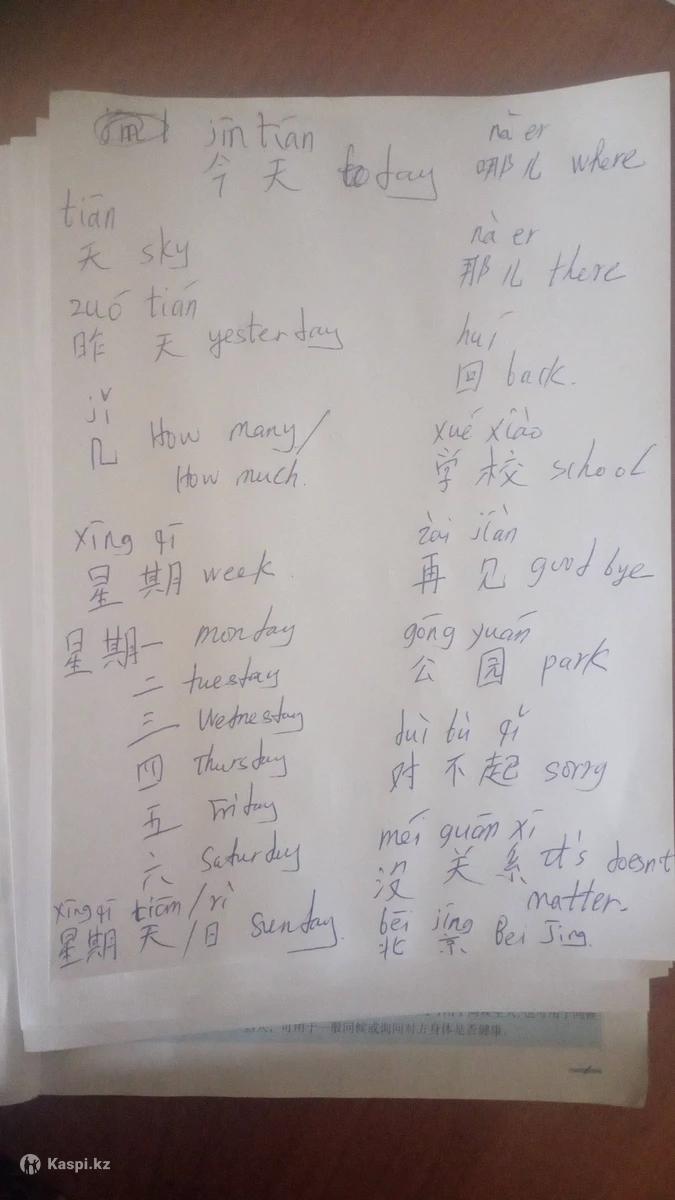 jīn tiān
今 天 today
tiān
天 sky
zuó tián
昨 天 yesterday
jǐ
几 How many/
How much.
xīng qī
星 期 week
星 期一 monday
二 tuesday
三 Wetnesday
四 Thursday
五 Friday
六 Saturday
xīng qī tiān/rì
星期 天/日 Sunday.
nà er
哪儿 where
nà er
那儿 there
huí
回 back.
xué xiào
学 校 school
zài jiàn
再 见 good bye
gōng yuán
公 园 park
duì bù qǐ
对 不 起 sorry
méi guān xī
没 关 系 it's doesn't
matter.
běi jīng
北 京 Bei Jing.
可用于一般问候或询问对方身体是否健康。
Kaspi.kz